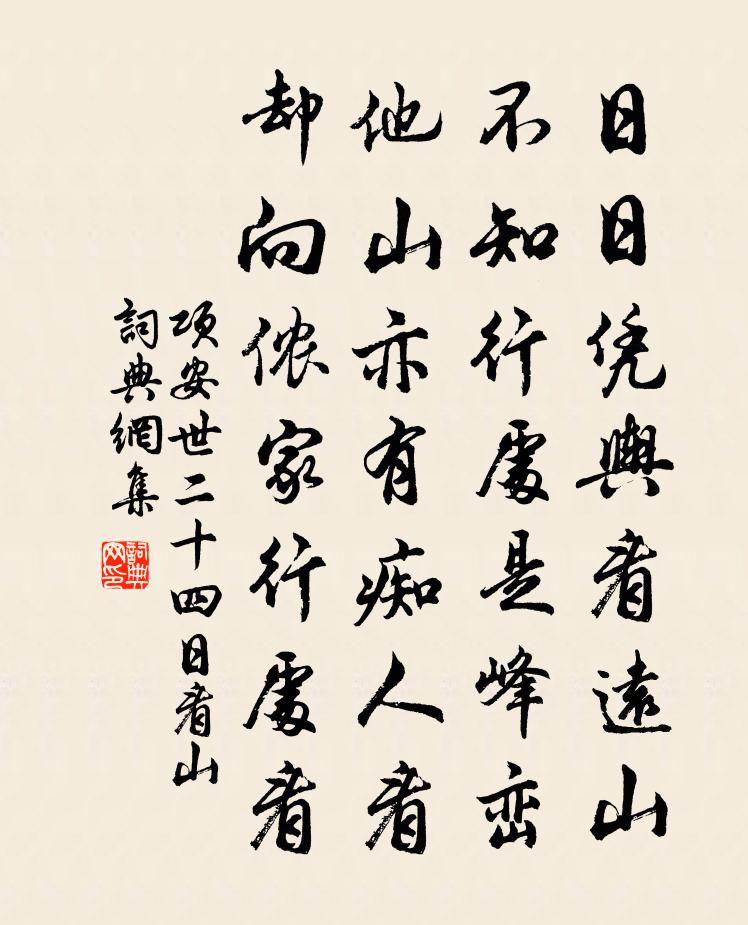 日日凭輿看遠山
不知行處是峰峦
他山亦有痴人看
却向侬家行處看
项安世二十四日看山
詞典網集
詞典网印